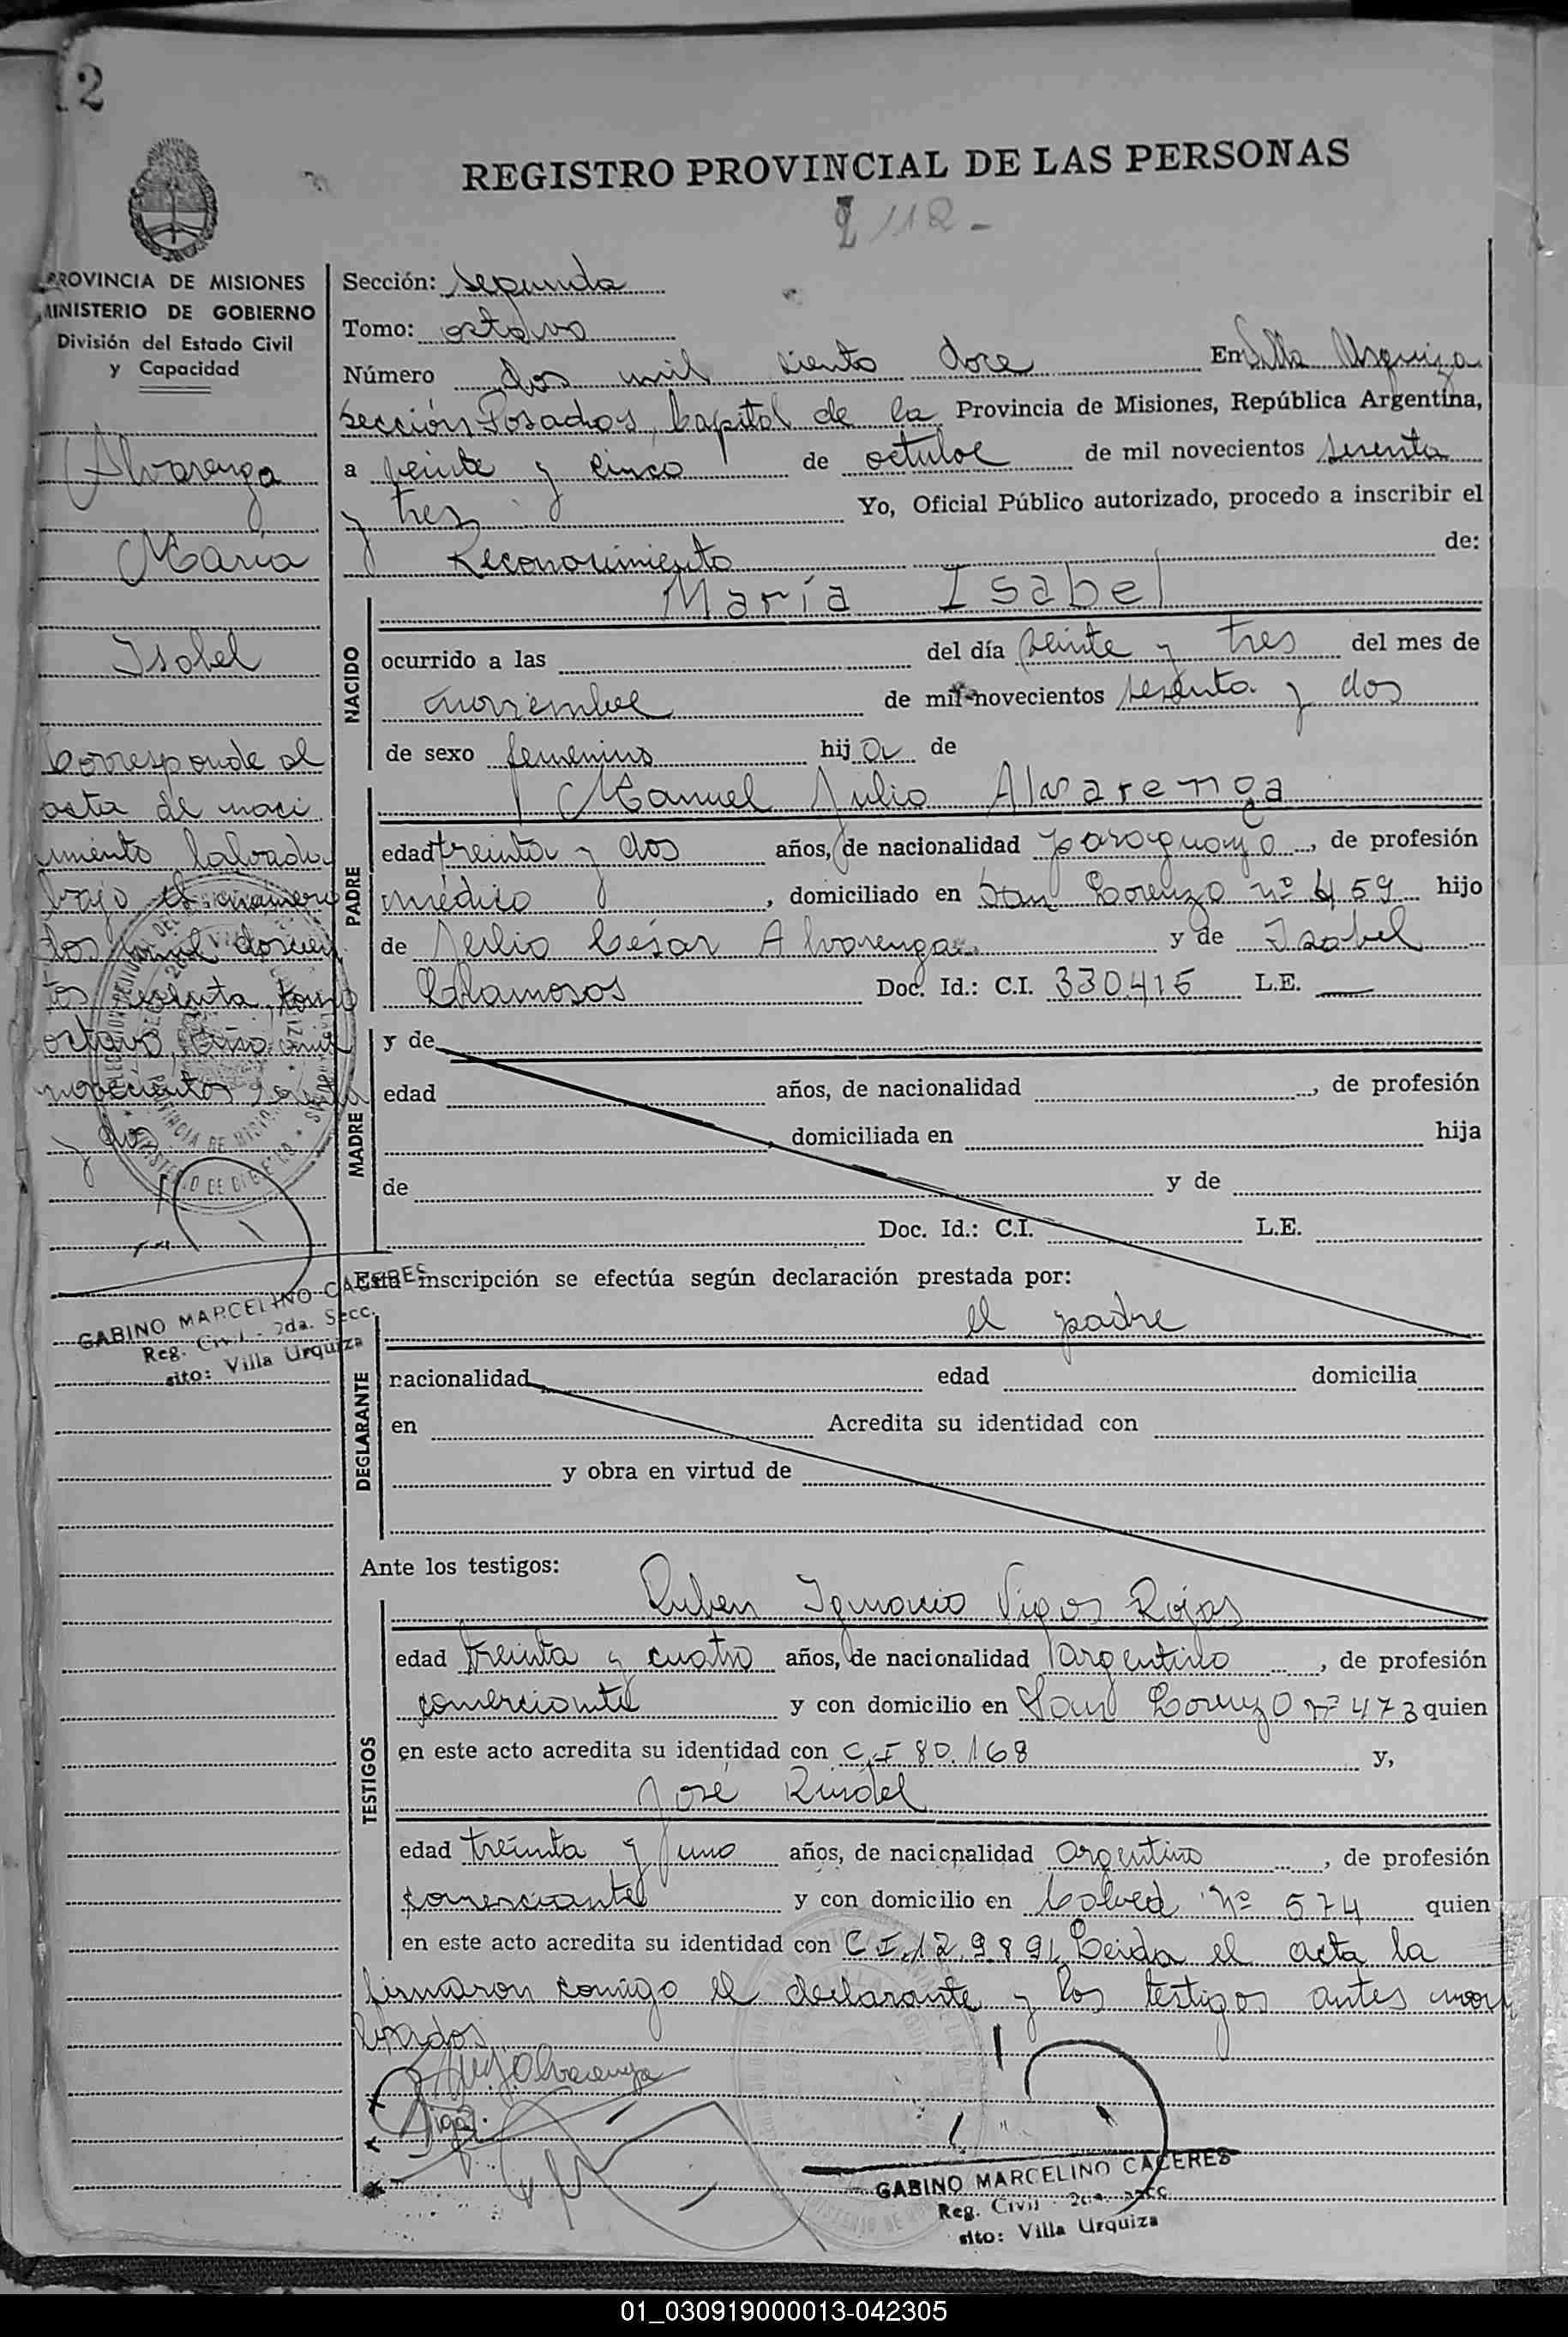 12
REGISTRO PROVINCIAL DE LAS PERSONAS
2112-
PROVINCIA DE MISIONES
MINISTERIO DE GOBIERNO
División del Estado Civil
y Capacidad
Alvarenga
María
Isabel
Corresponde al
acta de naci
miento labrada
bajo el número
dos mil doscien
tos sesenta, tomo
octavo, año mil
novecientos sesenta
y dos
GABINO MARCELINO CACERES
Reg. Civil - 2da. Secc.
sito: Villa Urquiza
Sección: segunda
Tomo: octavo
Número dos mil ciento doce En Villa Urquiza
Sección Posadas, Capital de la Provincia de Misiones, República Argentina,
a veinte y cinco de octubre de mil novecientos sesenta
y tres Yo, Oficial Público autorizado, procedo a inscribir el
Reconocimiento de:
María Isabel
NACIDO
ocurrido a las del día veinte y tres del mes de
noviembre de mil novecientos sesenta y dos
de sexo femenino hija de
Manuel Julio Alvarenga
PADRE
edad treinta y dos años, de nacionalidad paraguaya, de profesión
médico, domiciliado en San Lorenzo nº 459 hijo
de Julio César Alvarenga y de Isabel
Chamosos Doc. Id.: C.I. 330.415 L.E. —
MADRE
y de
edad años, de nacionalidad , de profesión
domiciliada en hija
de y de
Doc. Id.: C.I. L.E.
Esta inscripción se efectúa según declaración prestada por:
el padre
DECLARANTE
nacionalidad edad domicilia
en Acredita su identidad con
y obra en virtud de
Ante los testigos:
Ruben Ignacio Vigos Rojas
TESTIGOS
edad treinta y cuatro años, de nacionalidad argentino, de profesión
comerciante y con domicilio en San Lorenzo nº 473 quien
en este acto acredita su identidad con C.I 80.168 y,
José Rindel
edad treinta y uno años, de nacionalidad argentino, de profesión
comerciante y con domicilio en Colved nº 574 quien
en este acto acredita su identidad con C.I. 12.989. Leida el acta la
firmaron conmigo el declarante y los testigos antes nom
brados.
GABINO MARCELINO CACERES
Reg. Civil - 2da. Secc.
sito: Villa Urquiza
01_030919000013-042305